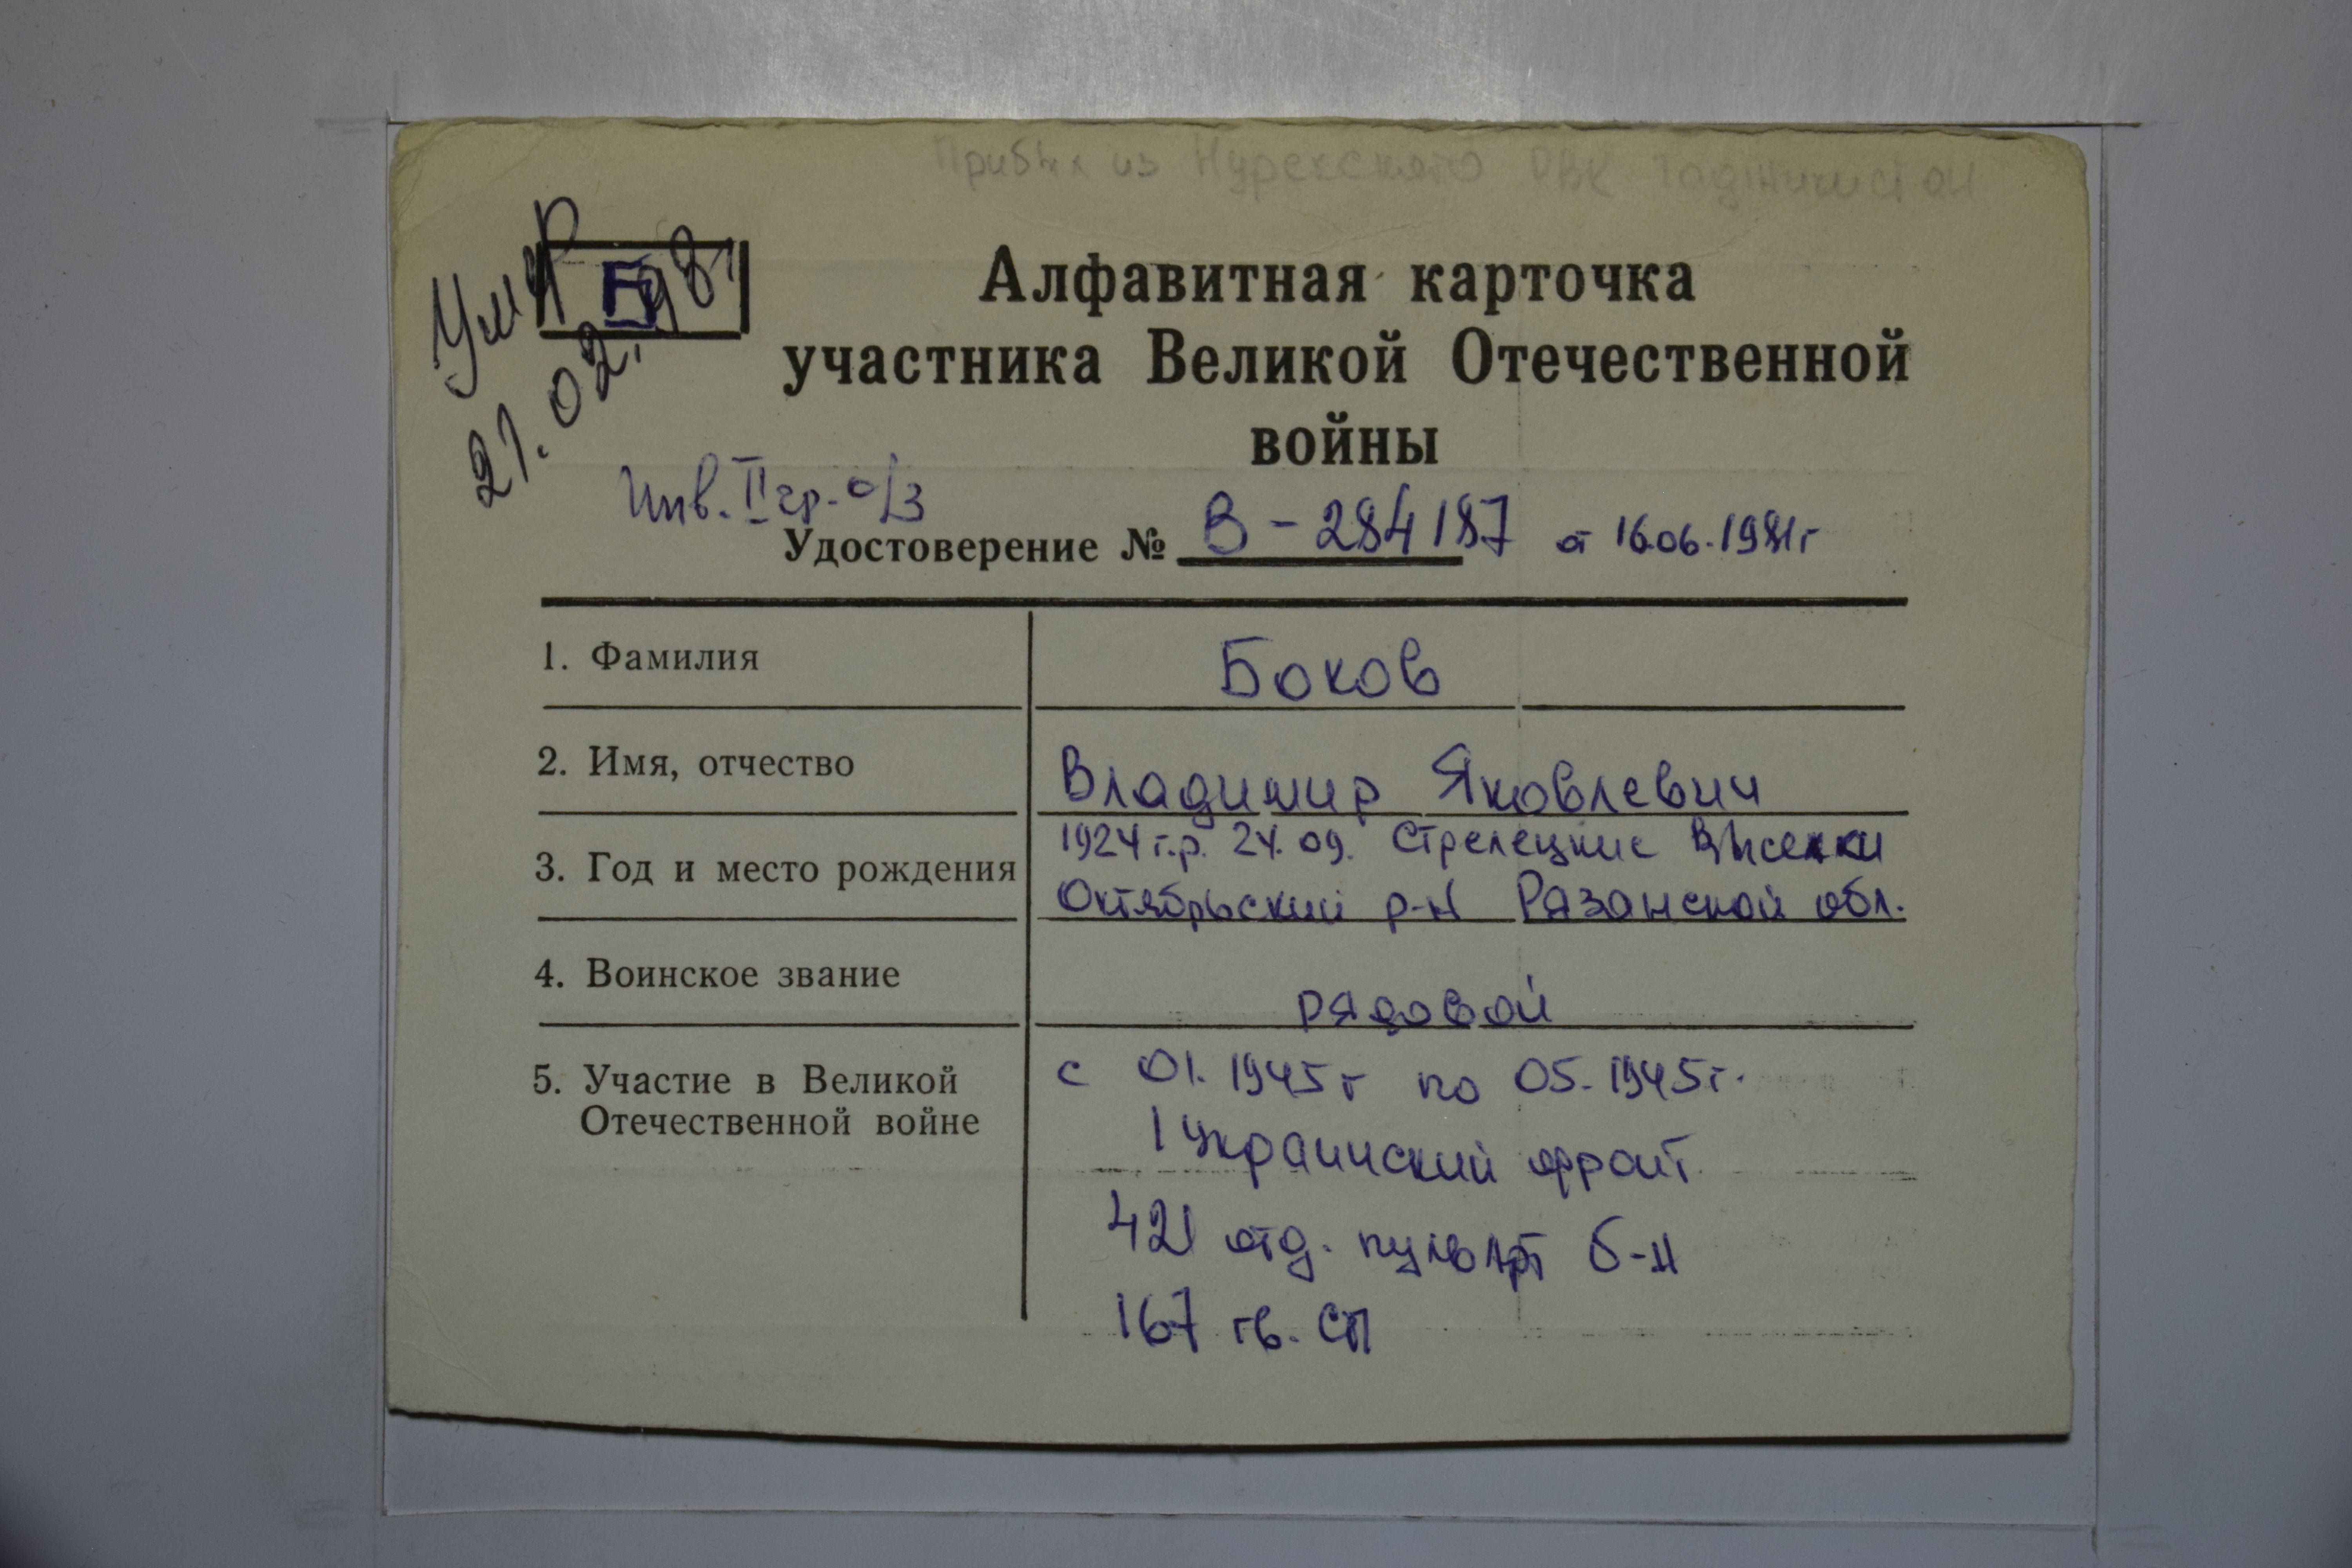 Прибыл из Нурекского РВК Таджикистан
Умер
21.02.98г
Б
Алфавитная карточка
участника Великой Отечественной
войны
Инв. II гр. о/з
Удостоверение № В - 284187 от 16.06.1981г
1. Фамилия
Боков
2. Имя, отчество
Владимир Яковлевич
3. Год и место рождения
1924 г.р. 24.09. Стрелецкие Выселки
Октябрьский р-н Рязанской обл.
4. Воинское звание
рядовой
5. Участие в Великой
Отечественной войне
с 01.1945г по 05.1945г.
1 Украинский фронт
421 отд. пульАрт б-н
167 гв. СП